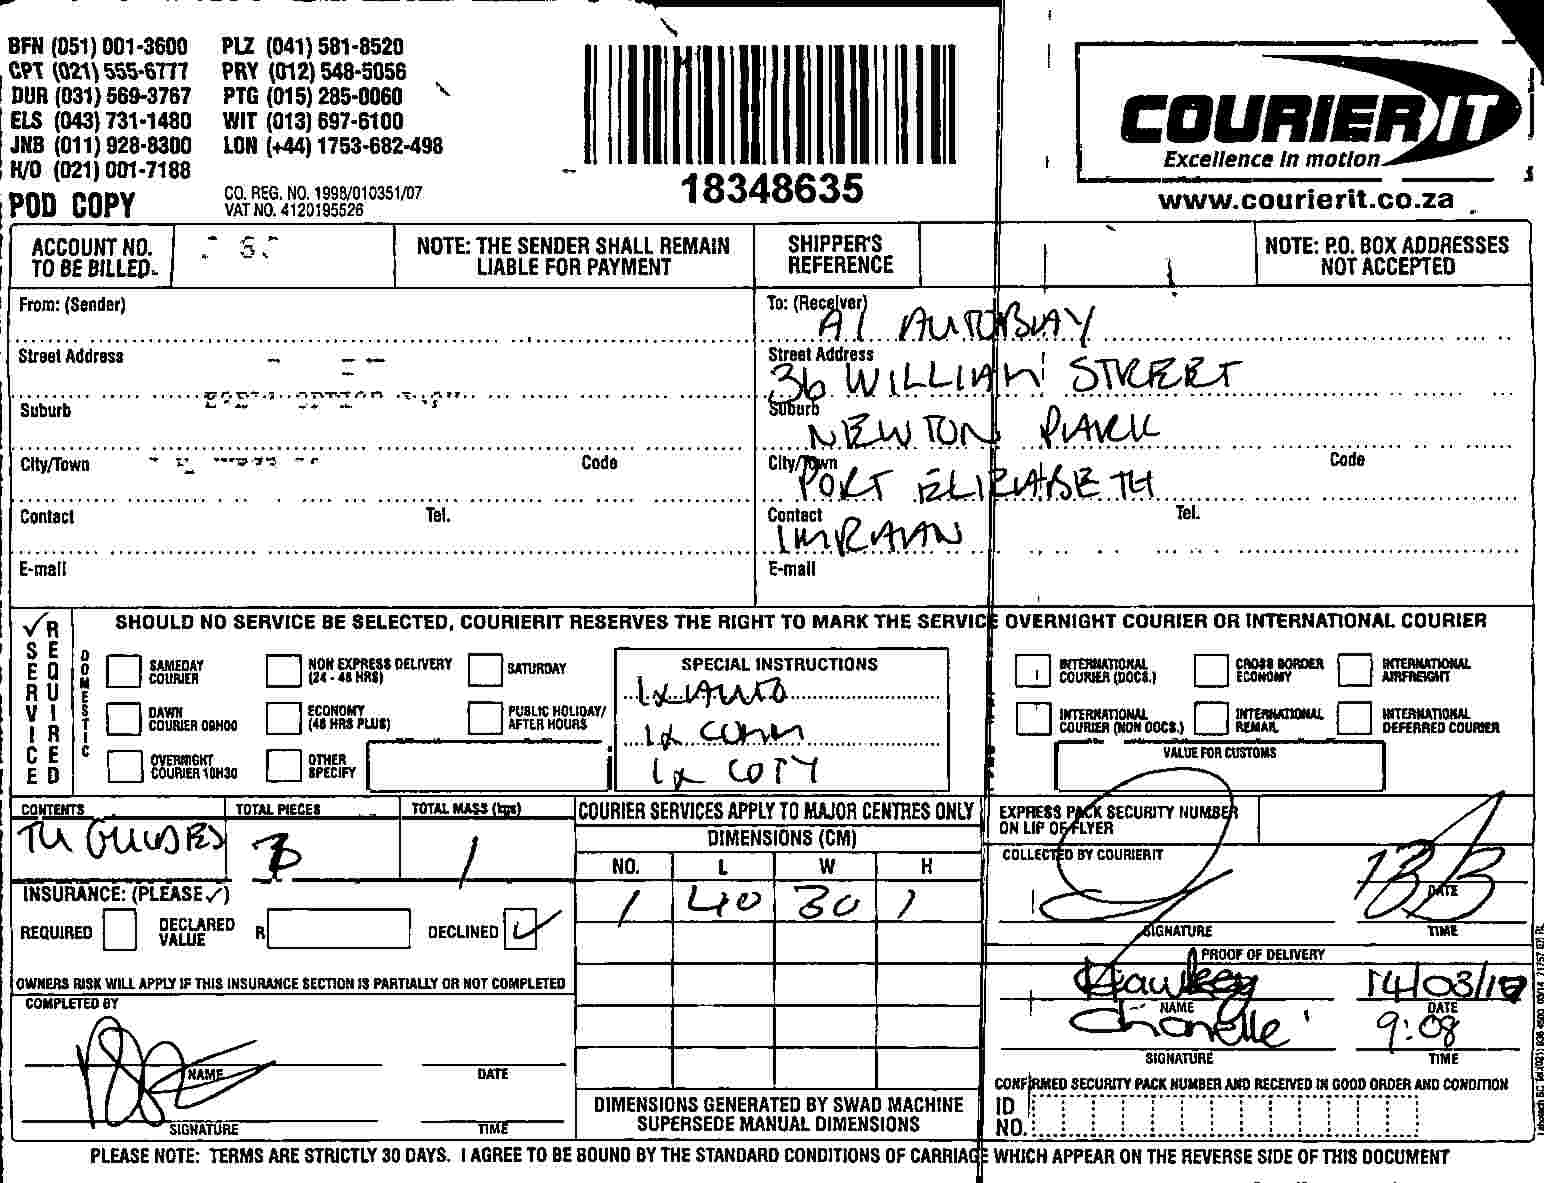 BFN (051) 001-3600 PLZ (041) 581-8520
CPT (021) 555-6777 PRY (012) 548-5056
DUR (031) 569-3767 PTG (015) 285-0060
ELS (043) 731-1480 WIT (013) 697-6100
JNB (011) 928-8300 LON (+44) 1753-682-498
H/O (021) 001-7188
POD COPY
CO. REG. NO. 1998/010351/07
VAT NO. 4120195526
18348635
COURIER IT
Excellence in motion
www.courierit.co.za
ACCOUNT NO. TO BE BILLED
NOTE: THE SENDER SHALL REMAIN LIABLE FOR PAYMENT
SHIPPER'S REFERENCE
NOTE: P.O. BOX ADDRESSES NOT ACCEPTED
From: (Sender)
Street Address
Suburb
City/Town Code
Contact Tel.
E-mail
To: (Receiver)
A1 AUTOBAY
Street Address
36 WILLIAM STREET
Suburb
NEWTON PARK
City/Town Code
PORT ELIZABETH
Contact Tel.
IMRAAN
E-mail
✓ SERVICE REQUIRED
SHOULD NO SERVICE BE SELECTED, COURIERIT RESERVES THE RIGHT TO MARK THE SERVICE OVERNIGHT COURIER OR INTERNATIONAL COURIER
DOMESTIC
SAMEDAY COURIER
NON EXPRESS DELIVERY (24 - 48 HRS)
SATURDAY
DAWN COURIER 09H00
ECONOMY (48 HRS PLUS)
PUBLIC HOLIDAY/ AFTER HOURS
OVERNIGHT COURIER 10H30
OTHER SPECIFY
SPECIAL INSTRUCTIONS
1x AUTO
1x COMM
1x
INTERNATIONAL COURIER (DOCS.)
CROSS BORDER ECONOMY
INTERNATIONAL AIRFREIGHT
INTERNATIONAL COURIER (NON DOCS.)
INTERNATIONAL REMAIL
INTERNATIONAL DEFERRED COURIER
VALUE FOR CUSTOMS
CONTENTS TOTAL PIECES TOTAL MASS (kgs)
TU GUIDES 3 1
COURIER SERVICES APPLY TO MAJOR CENTRES ONLY
DIMENSIONS (CM)
NO. L W H
1 40 30 1
INSURANCE: (PLEASE ✓)
REQUIRED DECLARED VALUE R DECLINED ✓
OWNERS RISK WILL APPLY IF THIS INSURANCE SECTION IS PARTIALLY OR NOT COMPLETED
COMPLETED BY
NAME DATE
SIGNATURE TIME
DIMENSIONS GENERATED BY SWAD MACHINE SUPERSEDE MANUAL DIMENSIONS
EXPRESS PACK SECURITY NUMBER ON LIP OF FLYER
COLLECTED BY COURIERIT
13/3
DATE
SIGNATURE TIME
PROOF OF DELIVERY
14/03/
NAME DATE
Chanelle 9:08
SIGNATURE TIME
CONFIRMED SECURITY PACK NUMBER AND RECEIVED IN GOOD ORDER AND CONDITION
ID NO.
PLEASE NOTE: TERMS ARE STRICTLY 30 DAYS. I AGREE TO BE BOUND BY THE STANDARD CONDITIONS OF CARRIAGE WHICH APPEAR ON THE REVERSE SIDE OF THIS DOCUMENT